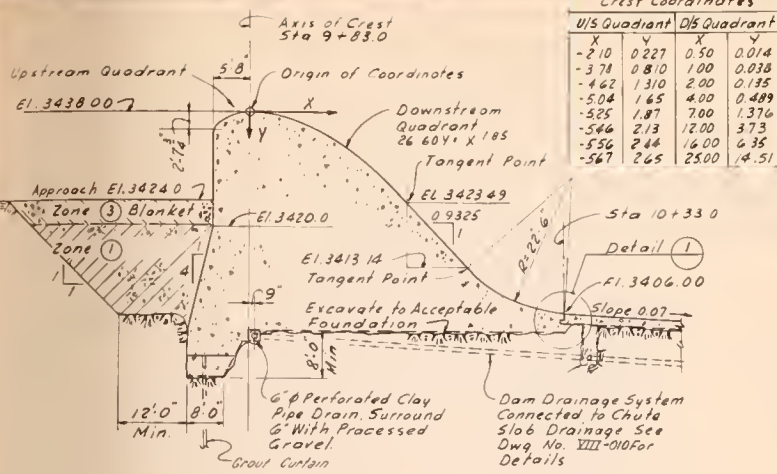 Crest Coordinates
U/S Quadrant D/S Quadrant
X Y X Y
-2.10 0.227 0.50 0.014
-3.78 0.810 1.00 0.038
-4.62 1.310 2.00 0.135
-5.04 1.65 4.00 0.489
-5.25 1.87 7.00 1.376
-5.46 2.13 12.00 3.73
-5.56 2.44 16.00 6.35
-5.67 2.65 25.00 14.51
Axis of Crest
Sta 9+83.0
5'-8"
Upstream Quadrant
Origin of Coordinates
El. 3438.00
X
Y
2'-7 3/4"
Downstream
Quadrant
26.60Y = X 1.85
Tangent Point
El. 3423.49
0.9325
1
Approach El. 3424.0
Zone 3 Blanket
El. 3420.0
Zone 1
1
1
4
1
R=22'-6"
Sta 10+33.0
Detail 1
El. 3413.14
Tangent Point
El. 3406.00
Slope 0.07
9"
Excavate to Acceptable
Foundation
8'-0"
Min
12'-0"
Min.
8'-0"
6" Φ Perforated Clay
Pipe Drain. Surround
6" With Processed
Gravel.
Grout Curtain
Dam Drainage System
Connected to Chute
Slab Drainage See
Dwg No. VIII-010 For
Details